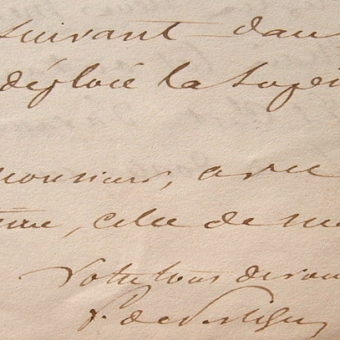 suivant dan
déploie la Supé
monsieur, avec
time, celle de m
Votre tous dévou
F. de